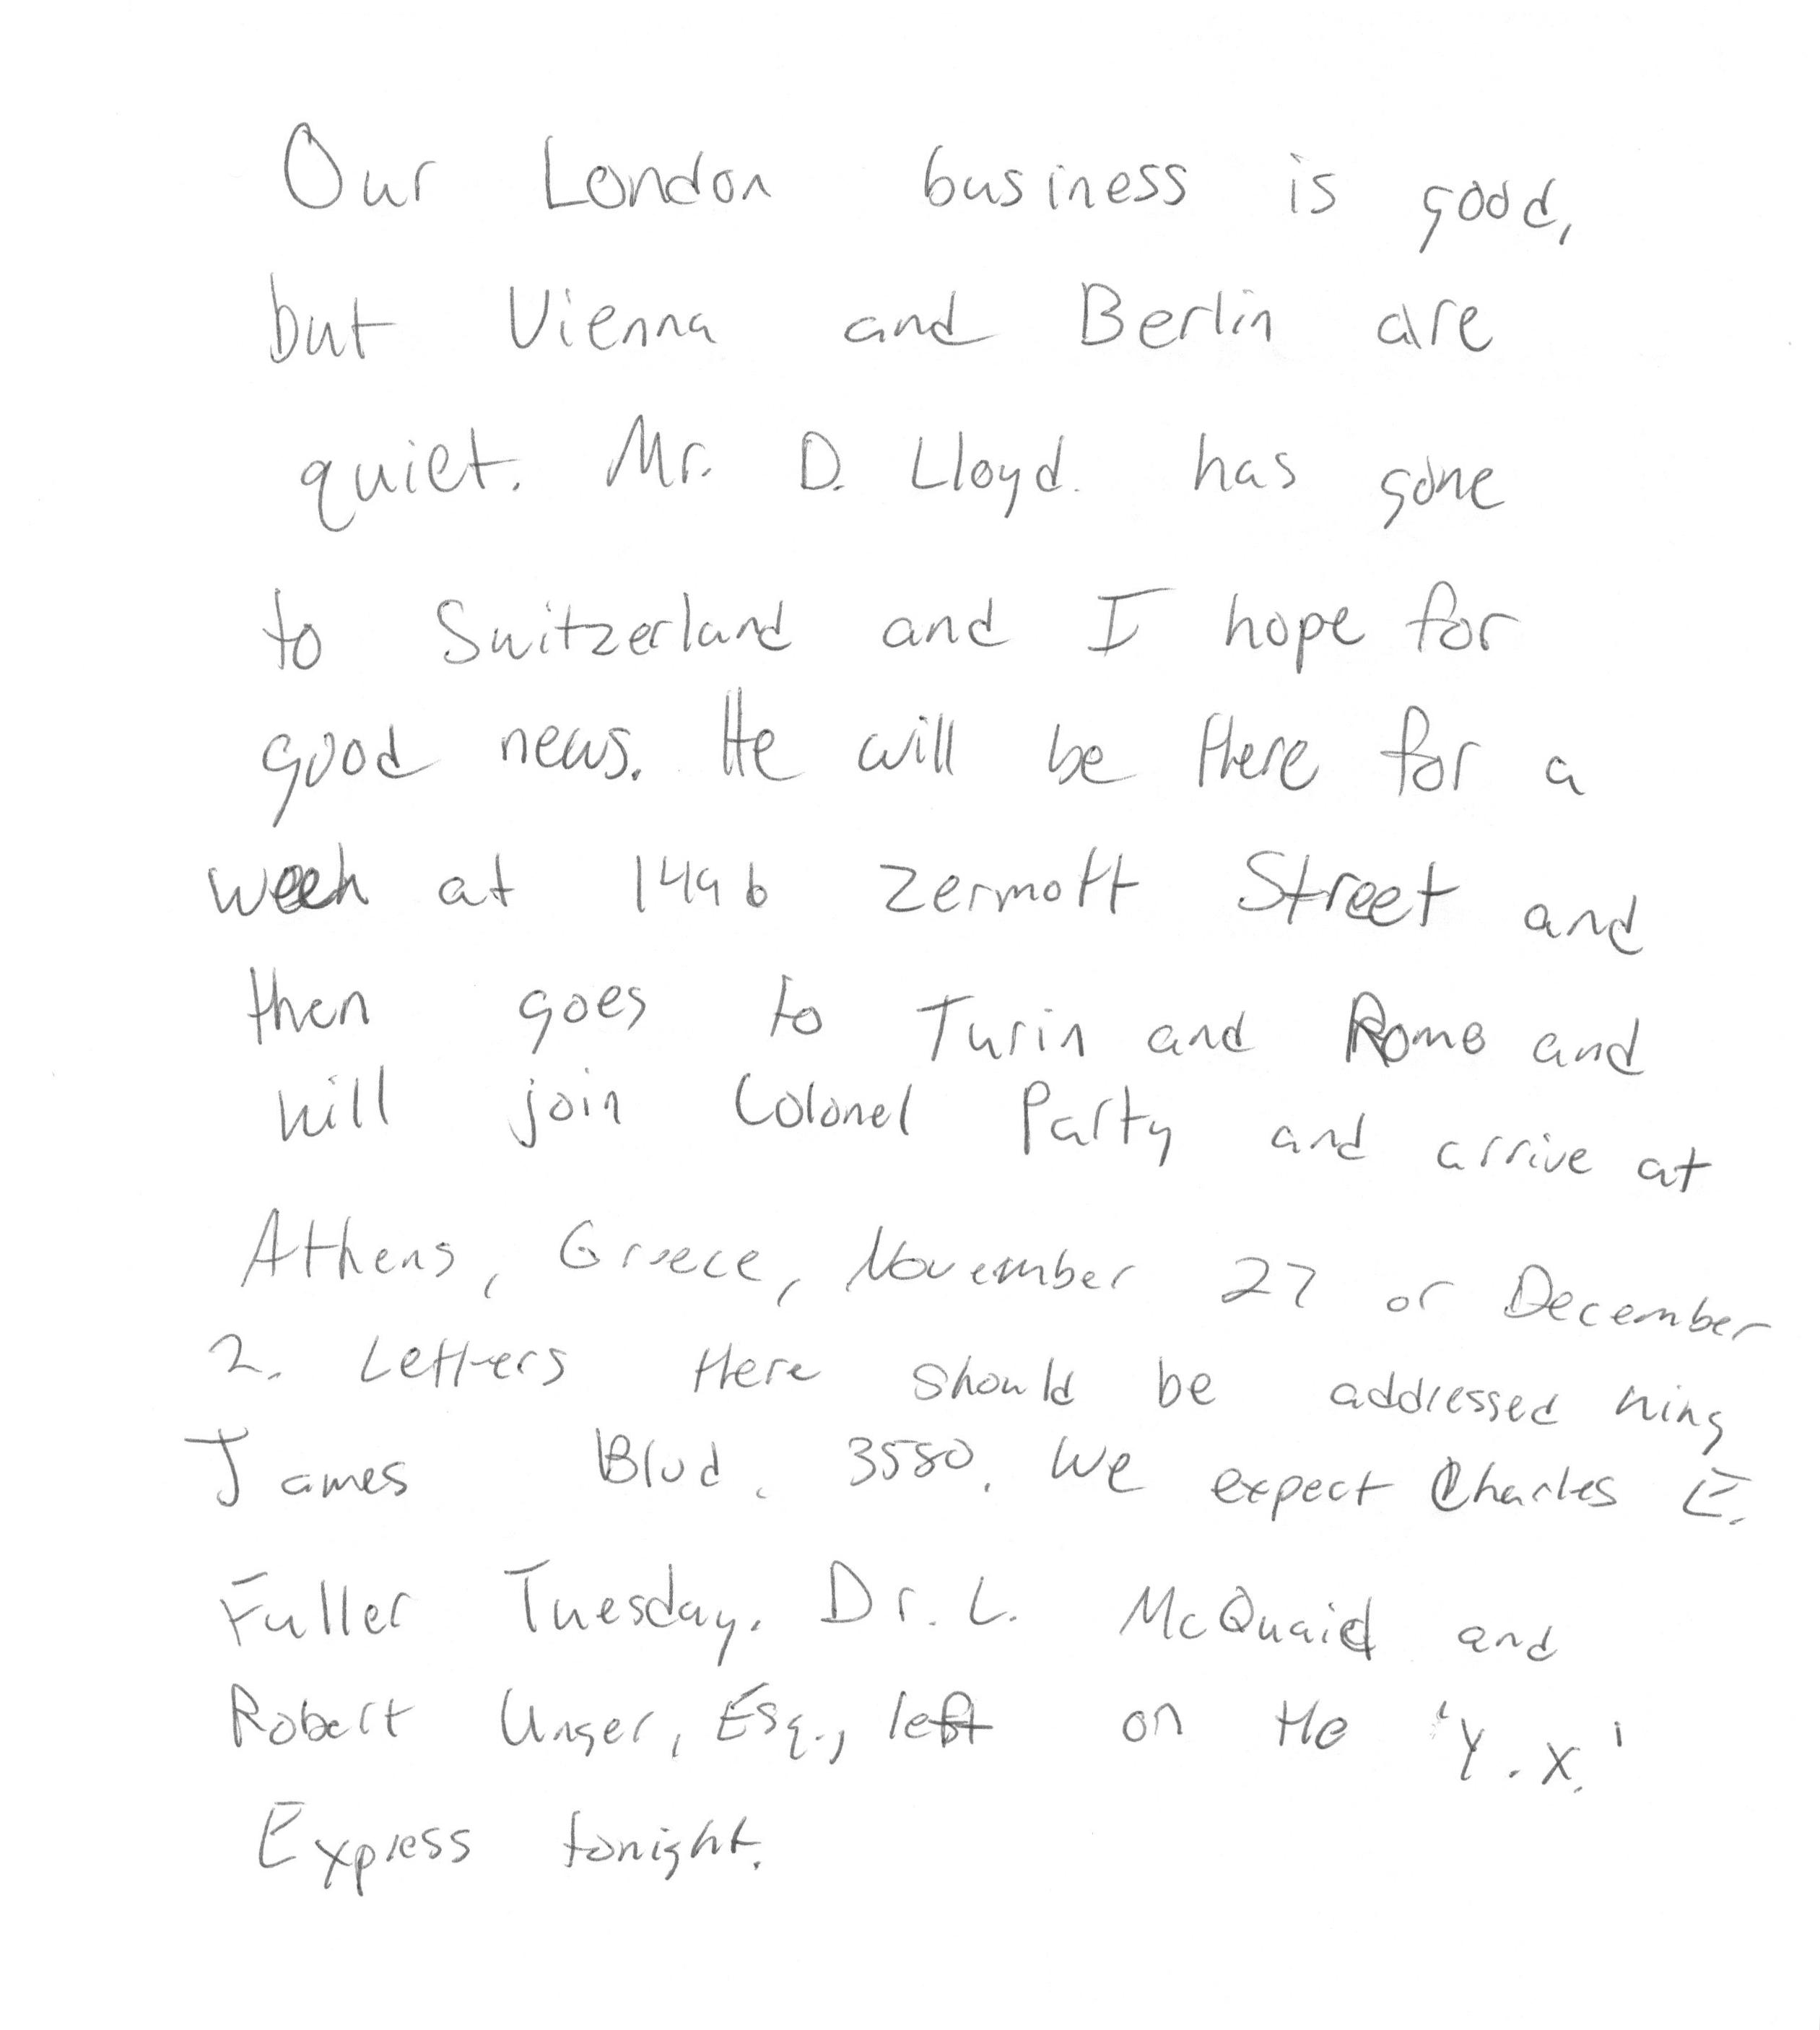 Our London business is good,
but Vienna and Berlin are
quiet. Mr. D. Lloyd. has gone
to Switzerland and I hope for
good news. He will be there for a
week at 1496 Zermott Street and
then goes to Turin and Rome and
will join Colonel Party and arrive at
Athens, Greece, November 27 or December
2. Letters there should be addressed King
James Blvd. 3580. We expect Charles E.
Fuller Tuesday. Dr. L. McQuaid and
Robert Unger, Esq., left on the 'Y.X.'
Express tonight.